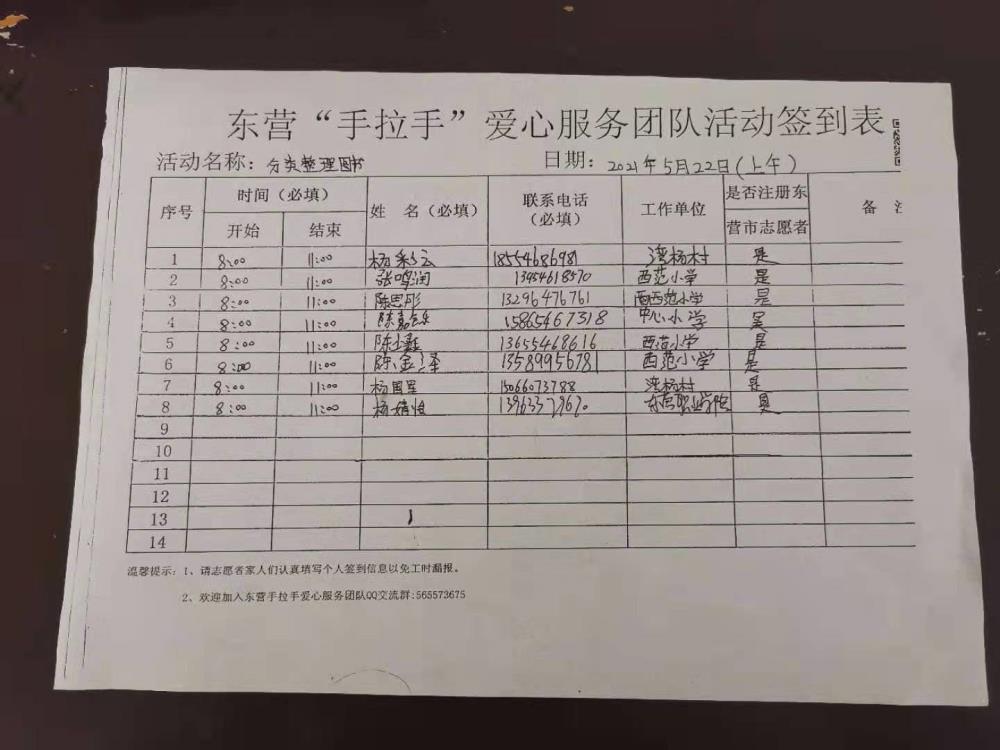 东营“手拉手”爱心服务团队活动签到表
活动名称：分类整理图书 日期：2021年5月22日(上午)
序号 时间（必填） 姓 名（必填） 联系电话（必填） 工作单位 是否注册东营市志愿者 备
开始 结束
1 8:00 11:00 杨彩云 18554686981 湾杨村 是
2 8:00 11:00 张鸣润 13454618570 西范小学 是
3 8:00 11:00 陈思彤 13296476761 西范小学 是
4 8:00 11:00 陈嘉乐 15865467318 中心小学 是
5 8:00 11:00 陈 13655468616 西范小学 是
6 8:00 11:00 陈金泽 13589956781 西范小学 是
7 8:00 11:00 杨国星 15066073788 湾杨村 是
8 8:00 11:00 杨婧 职业学院 是
9
10
11
12
13
14
温馨提示：1、请志愿者家人们认真填写个人签到信息以免工时漏报。
2、欢迎加入东营手拉手爱心服务团队QQ交流群:565573675